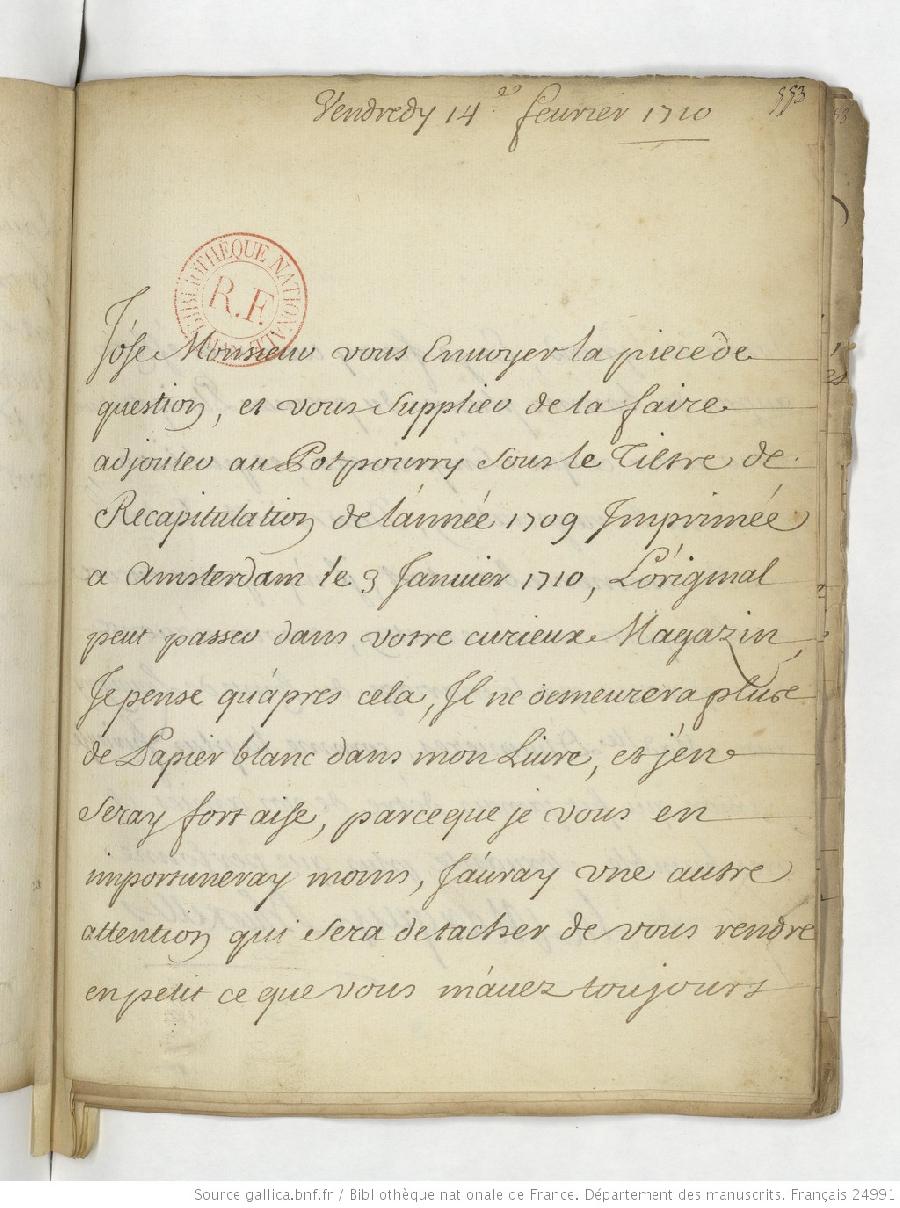 553
Vendredy 14.e feurier 1710
BIBLIOTHÈQUE NATIONALE
R.F.
J'ose Monsieur vous Enuoyer la piece de
question, et vous supplier de la faire
adjouter au Potpourry sous le Tiltre de
Recapitulation de l'année 1709 Imprimée
a Amsterdam le 3 Januier 1710, L'original
peut passer dans votre curieux Magazin,
Je pense qu'apres cela, Il ne demeurera plus
de Papier blanc dans mon Liure, et j'en
seray fort aise, parceque je vous en
importuneray moins, J'auray vne autre
attention qui sera de tacher de vous rendre
en petit ce que vous m'auez toujours
Source gallica.bnf.fr / Bibliothèque nationale de France. Département des manuscrits. Français 24991